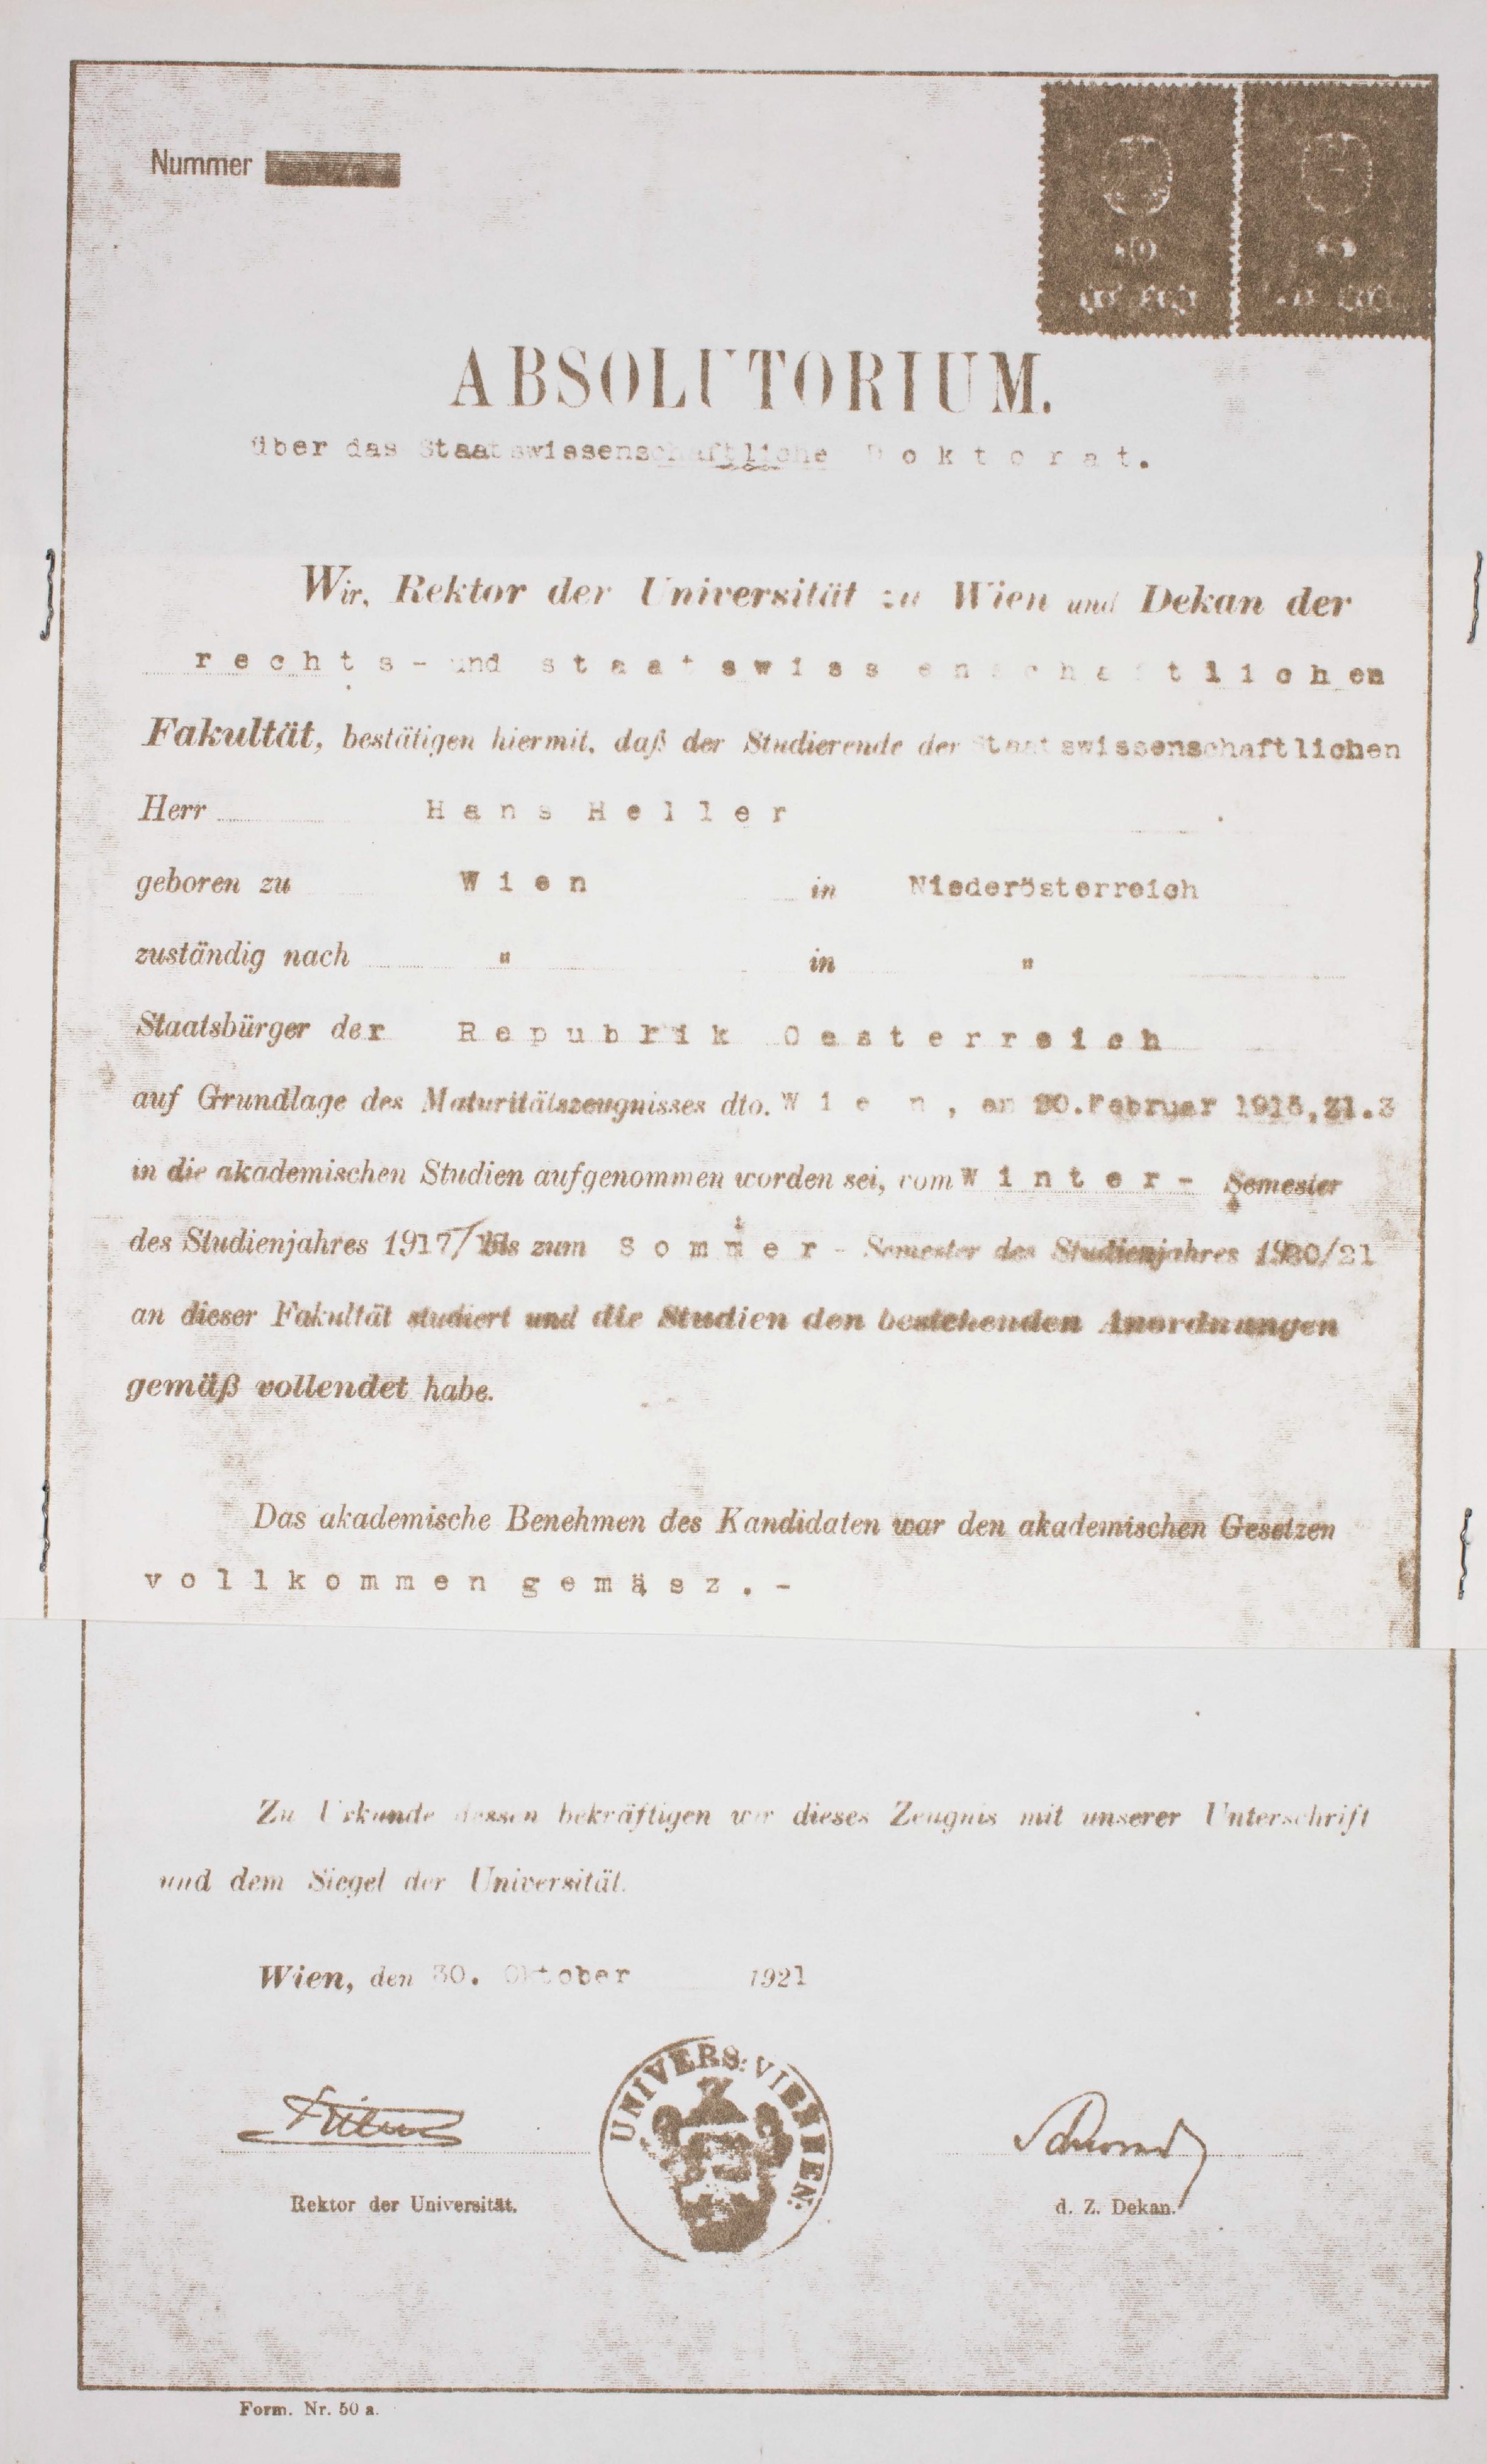 Nummer
ABSOLUTORIUM.
über das Staatswissenschaftliche Doktorat.
Wir, Rektor der Universität zu Wien und Dekan der
rechts- und staatswissenschaftlichen
Fakultät, bestätigen hiermit, daß der Studierende der Staatswissenschaftlichen
Herr Hans Heller
geboren zu Wien in Niederösterreich
zuständig nach " in "
Staatsbürger der Republik Oesterreich
auf Grundlage des Maturitätszeugnisses dto. Wien, am 20. Februar
in die akademischen Studien aufgenommen worden sei, vom Winter- Semester
des Studienjahres 1917/ bis zum Sommer- Semester des Studienjahres 1920/21
an dieser Fakultät studiert und die Studien den bestehenden Anordnungen
gemäß vollendet habe.
Das akademische Benehmen des Kandidaten war den akademischen Gesetzen
vollkommen gemäsz.-
Zu Urkunde dessen bekräftigen wir dieses Zeugnis mit unserer Unterschrift
und dem Siegel der Universität.
Wien, den 30. Oktober 1921
UNIVERS: VIENNEN:
Rektor der Universität.
d. Z. Dekan.
Form. Nr. 50 a.